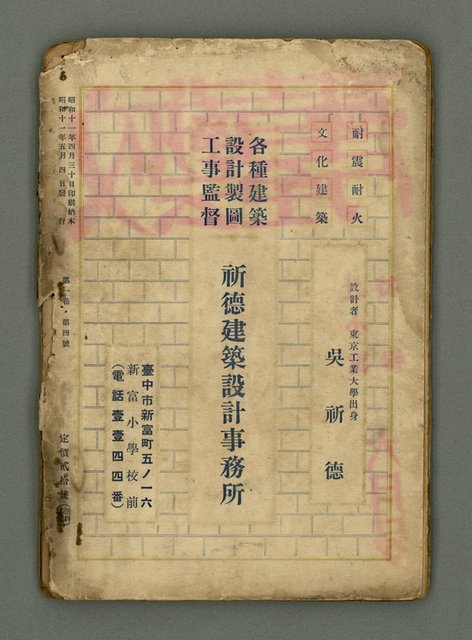 耐震耐火
文化建築
各種建築
設計製圖
工事監督
設計者 東京工業大學出身
吳祈德
祈德建築設計事務所
臺中市新富町五ノ一六
新富小學校前
（電話壹壹四四番）
昭和十一年四月三十日印刷納本
昭和十一年五月四日發行
第一卷・第四號
定價貳拾錢